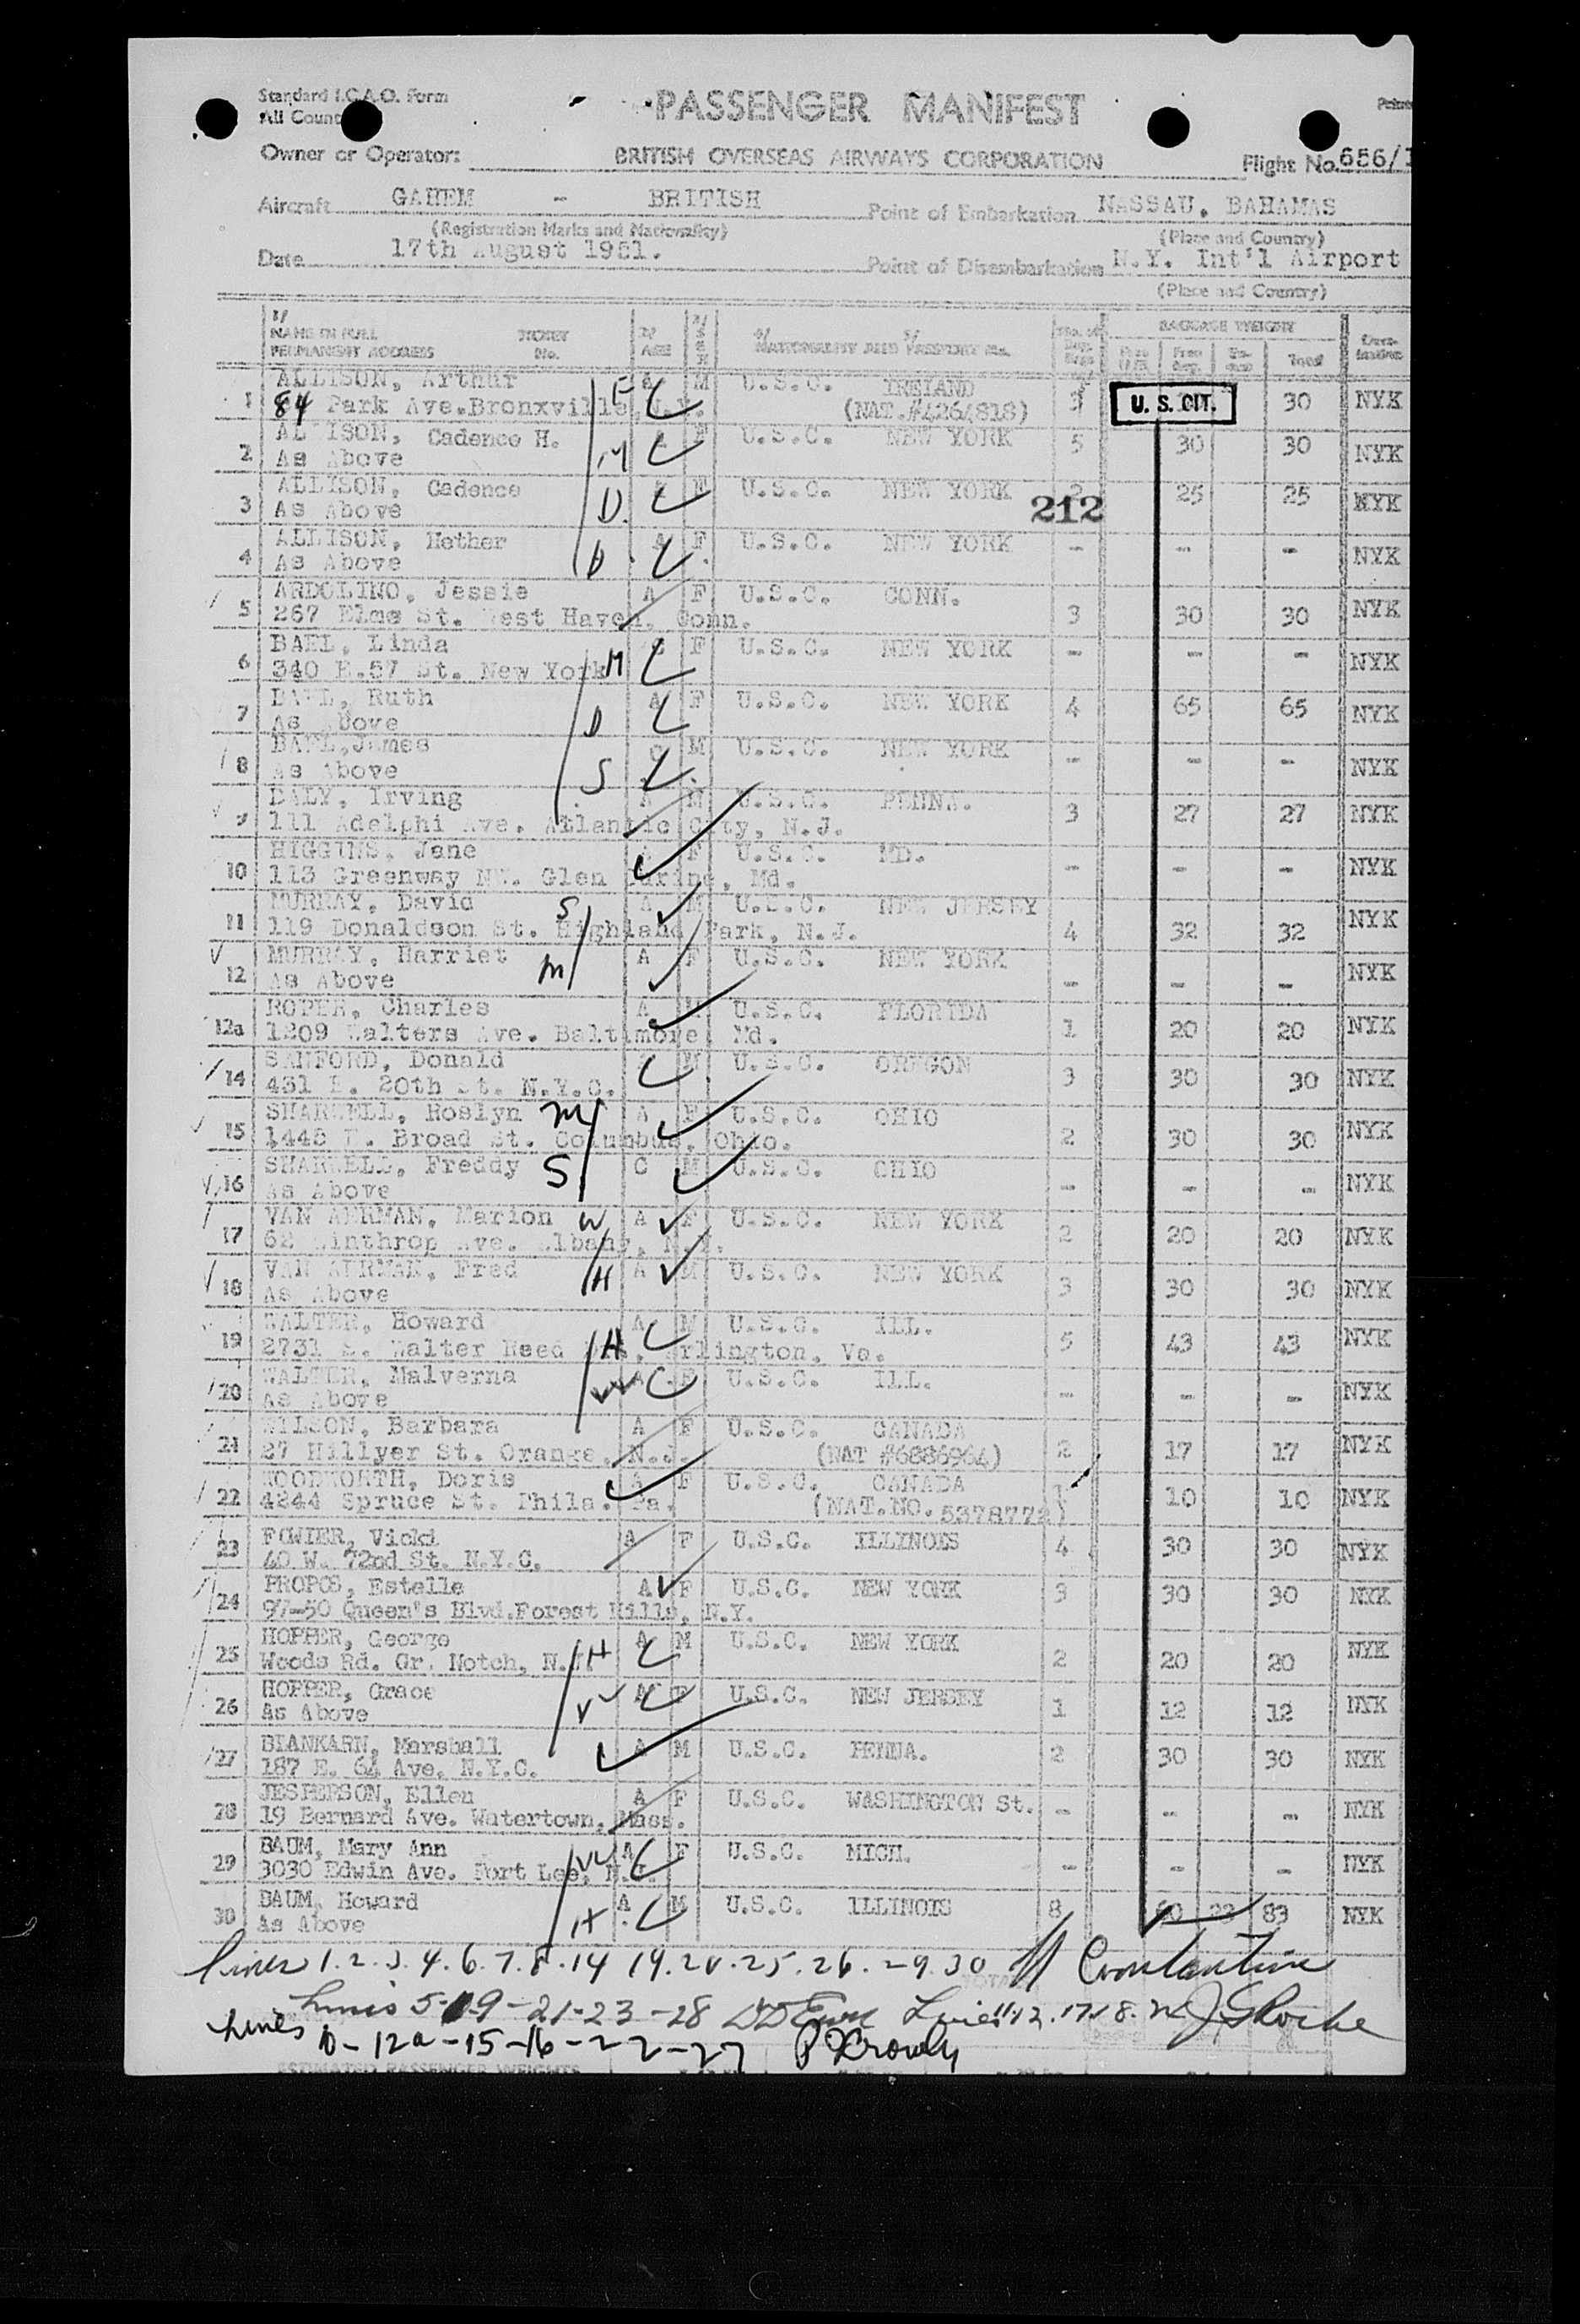 Standard I.C.A.O. Form
All Count
PASSENGER MANIFEST
Owner or Operator: BRITISH OVERSEAS AIRWAYS CORPORATION Flight No. 656/1
Aircraft GAHEM - BRITISH Point of Embarkation NASSAU, BAHAMAS
(Registration Marks and Nationality) (Place and Country)
Date 17th August 1951. Point of Disembarkation N.Y. Int'l Airport
(Place and Country)
NAME IN FULL TICKET AGE SEX NATIONALITY AND PASSPORT No. BAGGAGE WEIGHT
PERMANENT ADDRESS No. Total
1 ALLISON, Arthur F A M U.S.C. IRELAND U.S. CIT. 30 NYK
84 Park Ave. Bronxville, N.Y. (NAT.#4264818)
2 ALLISON, Cadence H. M F U.S.C. NEW YORK 5 30 30 NYK
As Above
3 ALLISON, Cadence D. F U.S.C. NEW YORK 2 25 25 NYK
As Above 212
4 ALLISON, Hether D A F U.S.C. NEW YORK - - - NYK
As Above
5 ARDOLINO, Jessie A F U.S.C. CONN. 3 30 30 NYK
267 Elms St. West Haven, Conn.
6 BAEL, Linda M F U.S.C. NEW YORK - - - NYK
340 E.57 St. New York
7 BAEL, Ruth D A F U.S.C. NEW YORK 4 65 65 NYK
As Above
8 BAEL, James S C M U.S.C. NEW YORK - - - NYK
As Above
9 DALY, Irving A M U.S.C. PENNA. 3 27 27 NYK
111 Adelphi Ave. Atlantic City, N.J.
10 HIGGINS, Jane A F U.S.C. MD. - - - NYK
113 Greenway NW. Glen Burine, Md.
11 MURRAY, David S A M U.S.C. NEW JERSEY 4 32 32 NYK
119 Donaldson St. Highland Park, N.J.
12 MURRAY, Harriet m A F U.S.C. NEW YORK - - - NYK
As Above
12a ROPER, Charles A M U.S.C. FLORIDA 1 20 20 NYK
1209 Walters Ave. Baltimore, Md.
14 SANFORD, Donald M U.S.C. OREGON 3 30 30 NYK
431 E. 20th St. N.Y.C.
15 Roslyn m A F U.S.C. OHIO 2 30 30 NYK
1445 E. Broad St. Columbus, Ohio.
16 Freddy S C M U.S.C. OHIO - - - NYK
As Above
17 VAN AERMAN, Marion W A F U.S.C. NEW YORK 2 20 20 NYK
62 Winthrop Ave. Albany, N.Y.
18 VAN AERMAN, Fred H A M U.S.C. NEW YORK 3 30 30 NYK
As Above
19 WALTER, Howard H A M U.S.C. ILL. 5 43 43 NYK
2731 S. Walter Reed Arlington, Va.
20 WALTER, Malverna W A F U.S.C. ILL. - - - NYK
As Above
21 WILSON, Barbara A F U.S.C. CANADA 2 17 17 NYK
27 Hillyer St. Orange, N.J. (NAT #6886964)
22 WOODWORTH, Doris A F U.S.C. CANADA 1 10 10 NYK
4244 Spruce St. Phila. Pa. (NAT.NO. 5378772)
23 FOWLER, Vicki A F U.S.C. ILLINOIS 4 30 30 NYK
40 W. 72nd St. N.Y.C.
24 PROPOS, Estelle A F U.S.C. NEW YORK 3 30 30 NYK
97-50 Queen's Blvd. Forest Hills, N.Y.
25 HOPPER, George H A M U.S.C. NEW YORK 2 20 20 NYK
Woods Rd. Gr. Notch, N.J.
26 HOPPER, Grace W A F U.S.C. NEW JERSEY 1 12 12 NYK
As Above
27 BLANKARN, Marshall A M U.S.C. PENNA. 2 30 30 NYK
187 E. 64 Ave. N.Y.C.
28 JESPERSON, Ellen A F U.S.C. WASHINGTON St. - - - NYK
19 Bernard Ave. Watertown, Mass.
29 BAUM, Mary Ann W A F U.S.C. MICH. - - - NYK
3030 Edwin Ave. Fort Lee, N.J.
30 BAUM, Howard H A M U.S.C. ILLINOIS 8 60 23 83 NYK
As Above
lines 1.2.3.4.6.7.8.14 19.20.25.26.29.30 Constantine
Lines 5-9-21-23-28 Lines 11.12.17.18.24
Lines 10-12a-15-16-22-27 P Crowly
ESTIMATED PASSENGER WEIGHTS